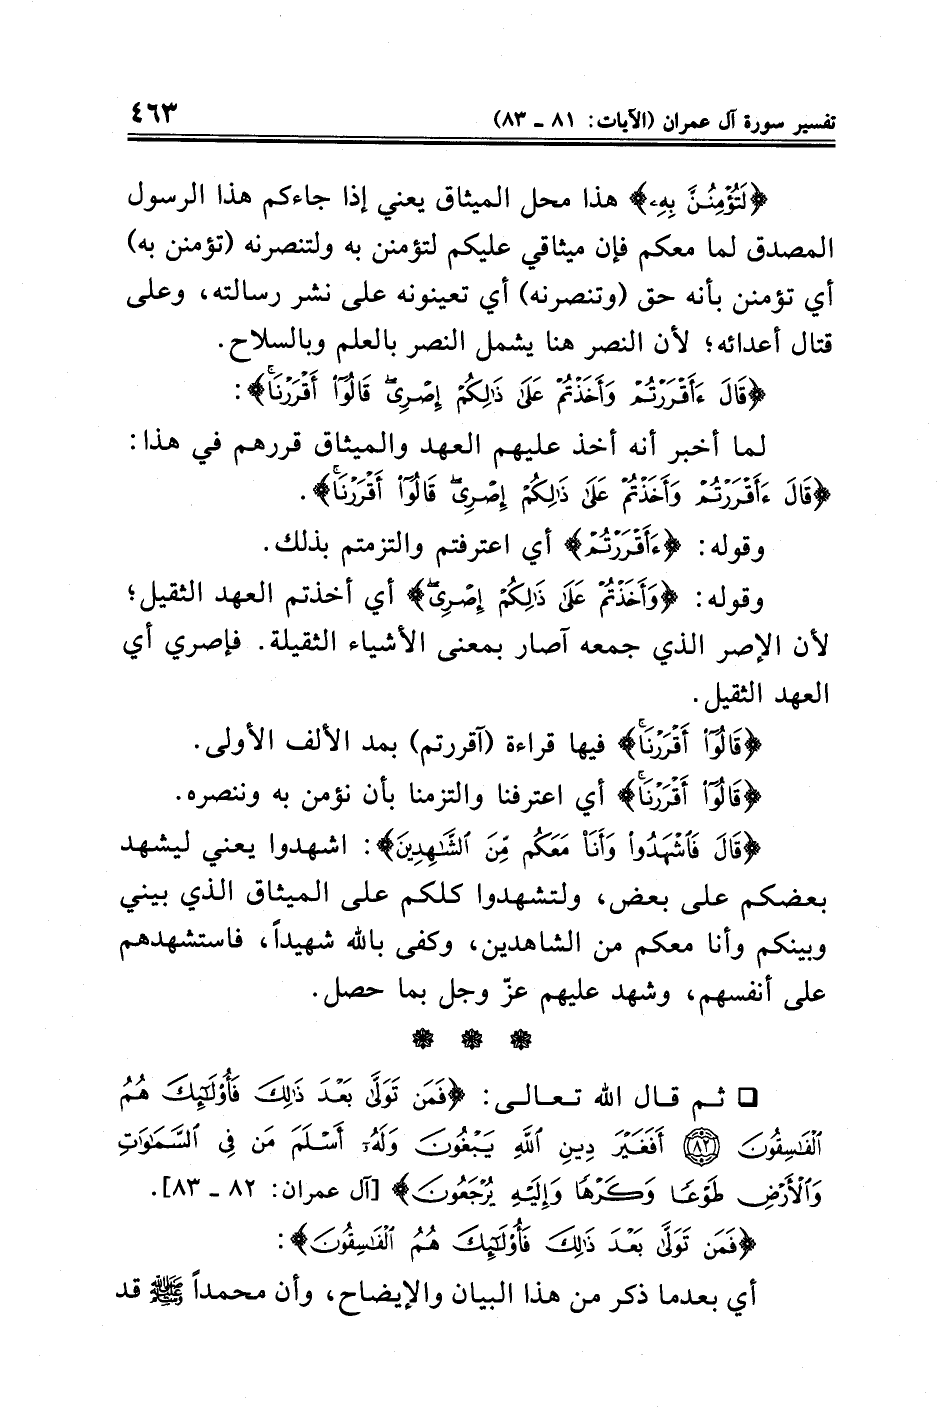 تفسير سورة آل عمران (الآيات: ٨١ ـ ٨٣) ٤٦٣
﴿لَتُؤْمِنُنَّ بِهِۦ﴾ هذا محل الميثاق يعني إذا جاءكم هذا الرسول
المصدق لما معكم فإن ميثاقي عليكم لتؤمنن به ولتنصرنه (تؤمنن به)
أي تؤمنن بأنه حق (وتنصرنه) أي تعينونه على نشر رسالته، وعلى
قتال أعدائه؛ لأن النصر هنا يشمل النصر بالعلم وبالسلاح.
﴿قَالَ ءَأَقْرَرْتُمْ وَأَخَذْتُمْ عَلَىٰ ذَٰلِكُمْ إِصْرِىۖ قَالُوٓا۟ أَقْرَرْنَاۚ﴾:
لما أخبر أنه أخذ عليهم العهد والميثاق قررهم في هذا:
﴿قَالَ ءَأَقْرَرْتُمْ وَأَخَذْتُمْ عَلَىٰ ذَٰلِكُمْ إِصْرِىۖ قَالُوٓا۟ أَقْرَرْنَاۚ﴾.
وقوله: ﴿ءَأَقْرَرْتُمْ﴾ أي اعترفتم والتزمتم بذلك.
وقوله: ﴿وَأَخَذْتُمْ عَلَىٰ ذَٰلِكُمْ إِصْرِىۖ﴾ أي أخذتم العهد الثقيل؛
لأن الإصر الذي جمعه آصار بمعنى الأشياء الثقيلة. فإصري أي
العهد الثقيل.
﴿قَالُوٓا۟ أَقْرَرْنَاۚ﴾ فيها قراءة (آقررتم) بمد الألف الأولى.
﴿قَالُوٓا۟ أَقْرَرْنَاۚ﴾ أي اعترفنا والتزمنا بأن نؤمن به وننصره.
﴿قَالَ فَٱشْهَدُوا۟ وَأَنَا۠ مَعَكُم مِّنَ ٱلشَّٰهِدِينَ﴾: اشهدوا يعني ليشهد
بعضكم على بعض، ولتشهدوا كلكم على الميثاق الذي بيني
وبينكم وأنا معكم من الشاهدين، وكفى بالله شهيداً، فاستشهدهم
على أنفسهم، وشهد عليهم عزّ وجل بما حصل.
❋ ❋ ❋
❏ ثـم قـال الله تـعـالـى: ﴿فَمَن تَوَلَّىٰ بَعْدَ ذَٰلِكَ فَأُو۟لَٰٓئِكَ هُمُ
ٱلْفَٰسِقُونَ ٨٢ أَفَغَيْرَ دِينِ ٱللَّهِ يَبْغُونَ وَلَهُۥٓ أَسْلَمَ مَن فِى ٱلسَّمَٰوَٰتِ
وَٱلْأَرْضِ طَوْعًا وَكَرْهًا وَإِلَيْهِ يُرْجَعُونَ﴾ [آل عمران: ٨٢ ـ ٨٣].
﴿فَمَن تَوَلَّىٰ بَعْدَ ذَٰلِكَ فَأُو۟لَٰٓئِكَ هُمُ ٱلْفَٰسِقُونَ﴾:
أي بعدما ذكر من هذا البيان والإيضاح، وأن محمداً ﷺ قد